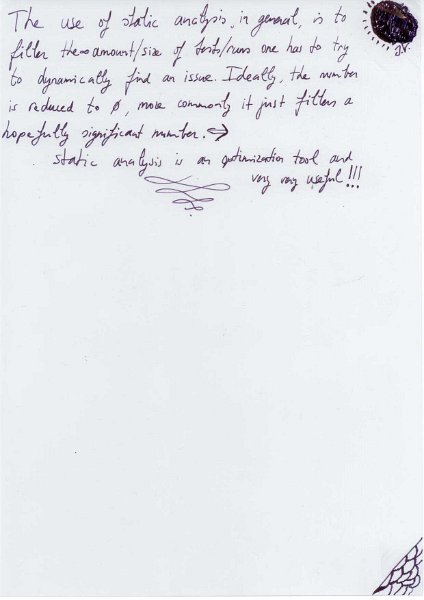 The use of static analysis, in general, is to
filter the amount/size of tests/runs one has to try
to dynamically find an issue. Ideally, the number
is reduced to ∅, more commonly it just filters a
hopefully significant number. ⇒
static analysis is an optimization tool and
very very useful!!!